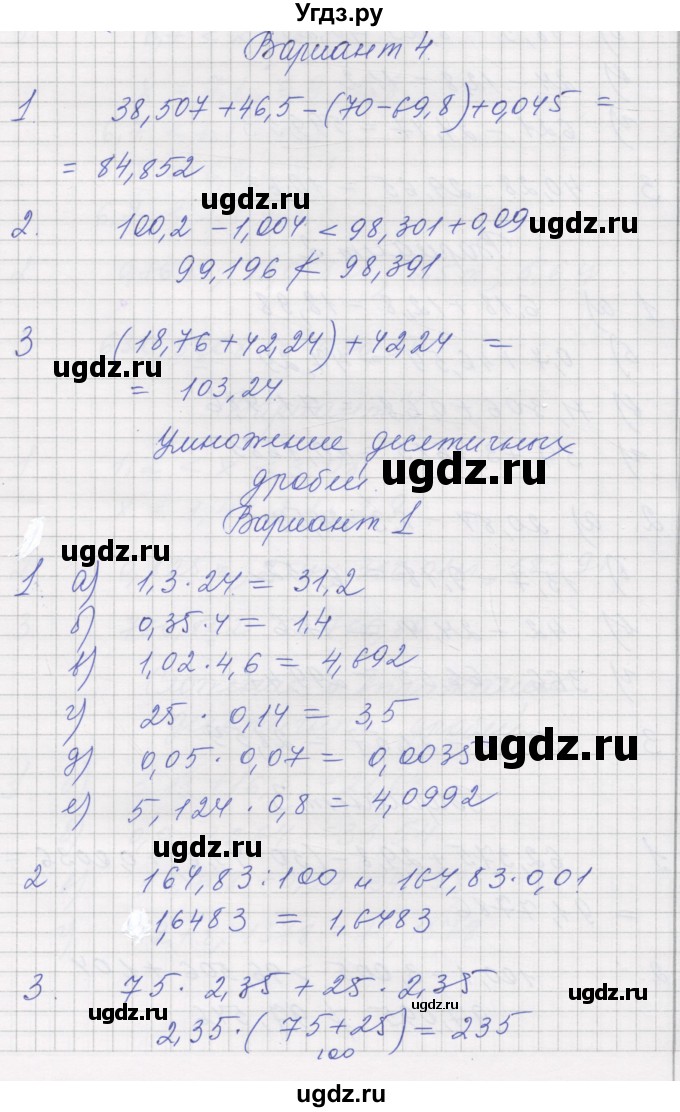 Угдз.ру
Вариант 4
1 38,507 + 46,5 - (70 - 69,8) + 0,045 =
= 84,852
ugdz.ru
2. 100,2 - 1,004 < 98,301 + 0,09
ugdz.ru
99,196 ≮ 98,391
3 (18,76 + 42,24) + 42,24 =
ugdz.ru
= 103,24
Умножение десетичных
ugdz.ru
дробей.
Вариант 1
ugdz.ru
1. а) 1,3 · 24 = 31,2
б) 0,35 · 4 = 1,4
ugdz.ru
в) 1,02 · 4,6 = 4,692
г) 25 · 0,14 = 3,5
ugdz.ru
д) 0,05 · 0,07 = 0,0035
е) 5,124 · 0,8 = 4,0992
ugdz.ru
2 164,83 : 100 и 164,83 · 0,01
1,6483 = 1,6483
3. 75 · 2,35 + 25 · 2,35
ugdz.ru
ugdz.ru
ugdz.ru
2,35 · (75 + 25) = 235
100
ugdz.ru
ugdz.ru